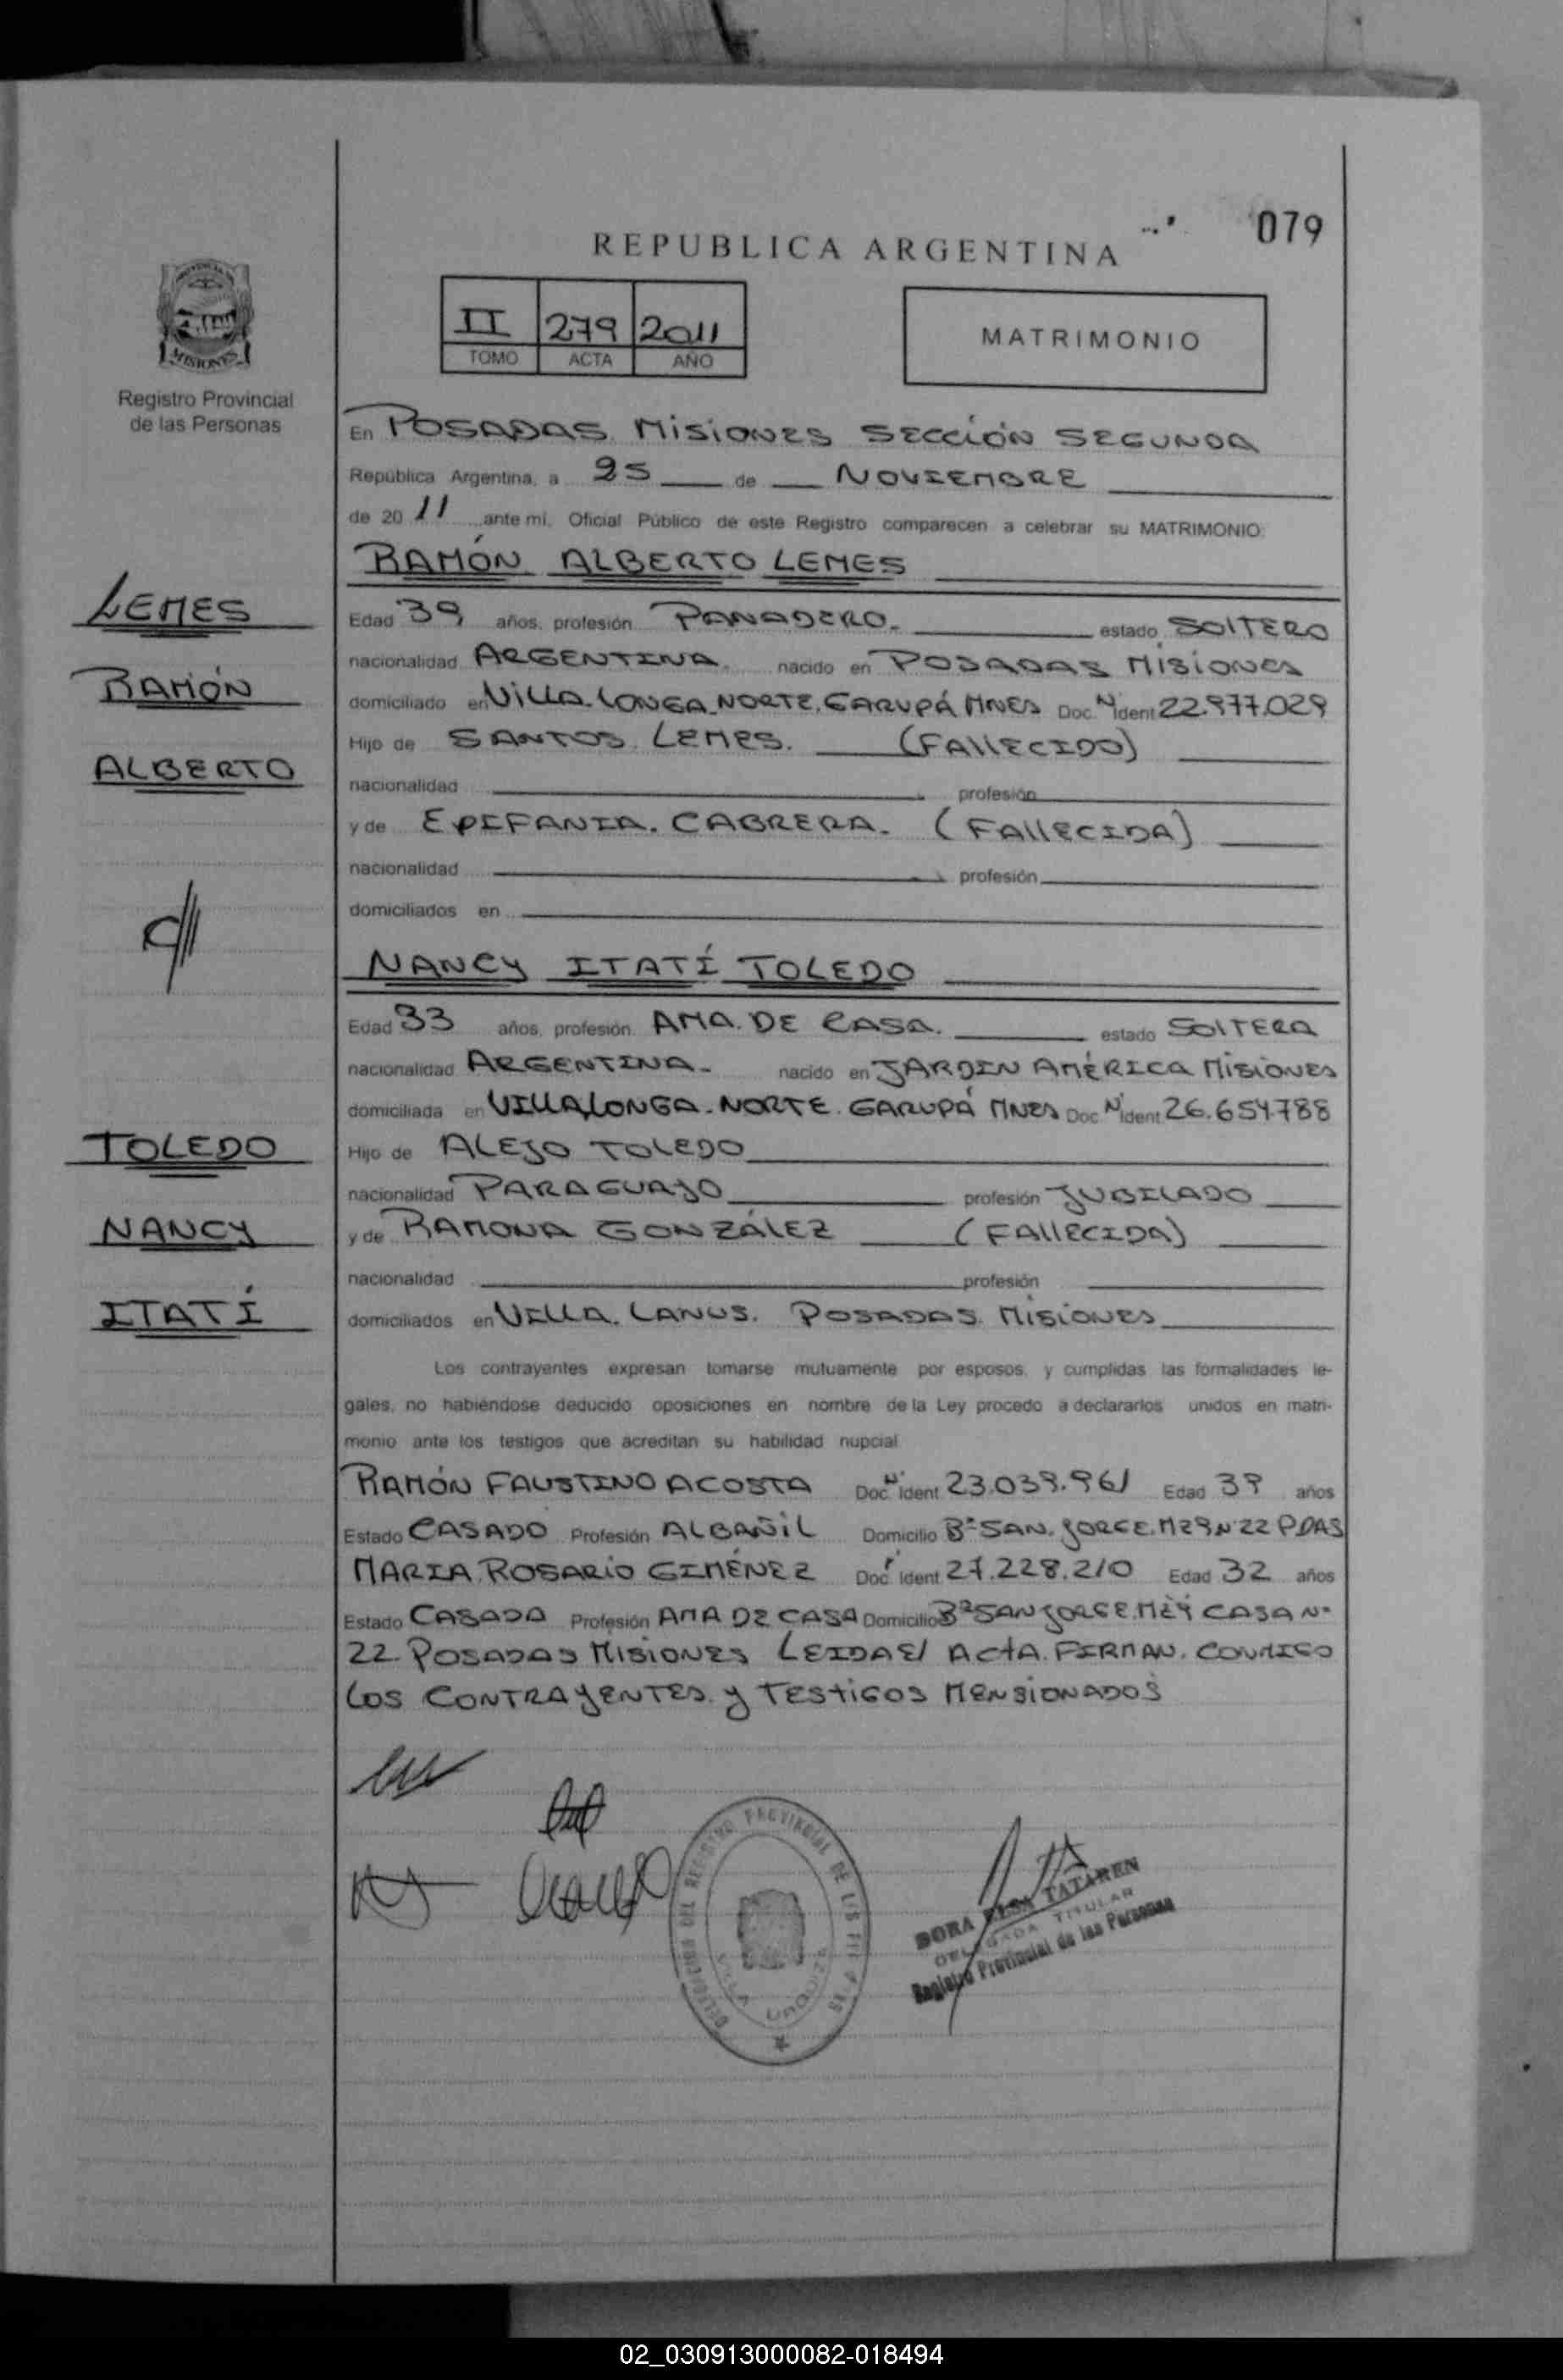 079
REPUBLICA ARGENTINA
II 279 2011
TOMO ACTA AÑO
MATRIMONIO
MISIONES
Registro Provincial
de las Personas
En POSADAS MISIONES SECCIÓN SEGUNDA
República Argentina, a 25 de NOVIEMBRE
de 20 11 ante mi, Oficial Público de este Registro comparecen a celebrar su MATRIMONIO:
RAMÓN ALBERTO LEMES
LEMES
RAMÓN
ALBERTO
Edad 39 años, profesión PANADERO. estado SOLTERO
nacionalidad ARGENTINA. nacido en POSADAS MISIONES
domiciliado en VILLA LONGA NORTE. GARUPÁ MNES Doc. Nº Ident 22.977.029
Hijo de SANTOS LEMES. (FALLECIDO)
nacionalidad profesión
y de EPIFANIA. CABRERA. (FALLECIDA)
nacionalidad profesión
domiciliados en
NANCY ITATÍ TOLEDO
Edad 33 años, profesión AMA. DE CASA. estado SOLTERA
nacionalidad ARGENTINA. nacido en JARDIN AMÉRICA MISIONES
domiciliada en VILLALONGA. NORTE. GARUPÁ MNES Doc Nº Ident 26.654.788
TOLEDO
NANCY
ITATÍ
Hijo de ALEJO TOLEDO
nacionalidad PARAGUAYO profesión JUBILADO
y de RAMONA GONZÁLEZ (FALLECIDA)
nacionalidad profesión
domiciliados en VILLA. LANUS. POSADAS. MISIONES
Los contrayentes expresan tomarse mutuamente por esposos, y cumplidas las formalidades le-
gales, no habiéndose deducido oposiciones en nombre de la Ley procedo a declararlos unidos en matri-
monio ante los testigos que acreditan su habilidad nupcial
RAMÓN FAUSTINO ACOSTA Doc Nº Ident 23.039.961 Edad 39 años
Estado CASADO Profesión ALBAÑIL Domicilio Bº SAN. JORGE. MZ9 Nº 22 PDAS
MARIA ROSARIO GIMÉNEZ Doc Ident 27.228.210 Edad 32 años
Estado CASADA Profesión AMA DE CASA Domicilio Bº SAN JORGE. MZ9 CASA Nº
22 POSADAS MISIONES LEIDA El ACTA. FIRMAN. CONMIGO
LOS CONTRAYENTES. y TESTIGOS MENSIONADOS
DELEGACION DEL REGISTRO PROVINCIAL DE LAS PERSONAS
VILLA URQUIZA
DORA ELSA TATAREN
DELEGADA TITULAR
Registro Provincial de las Personas
02_030913000082-018494